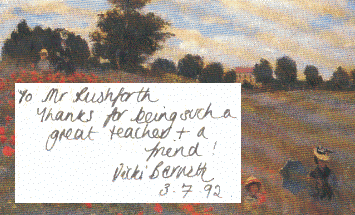 To Mr Rushforth
Thanks for being such a
great teacher + a
friend!
Vicki Barnett
3.7.92.